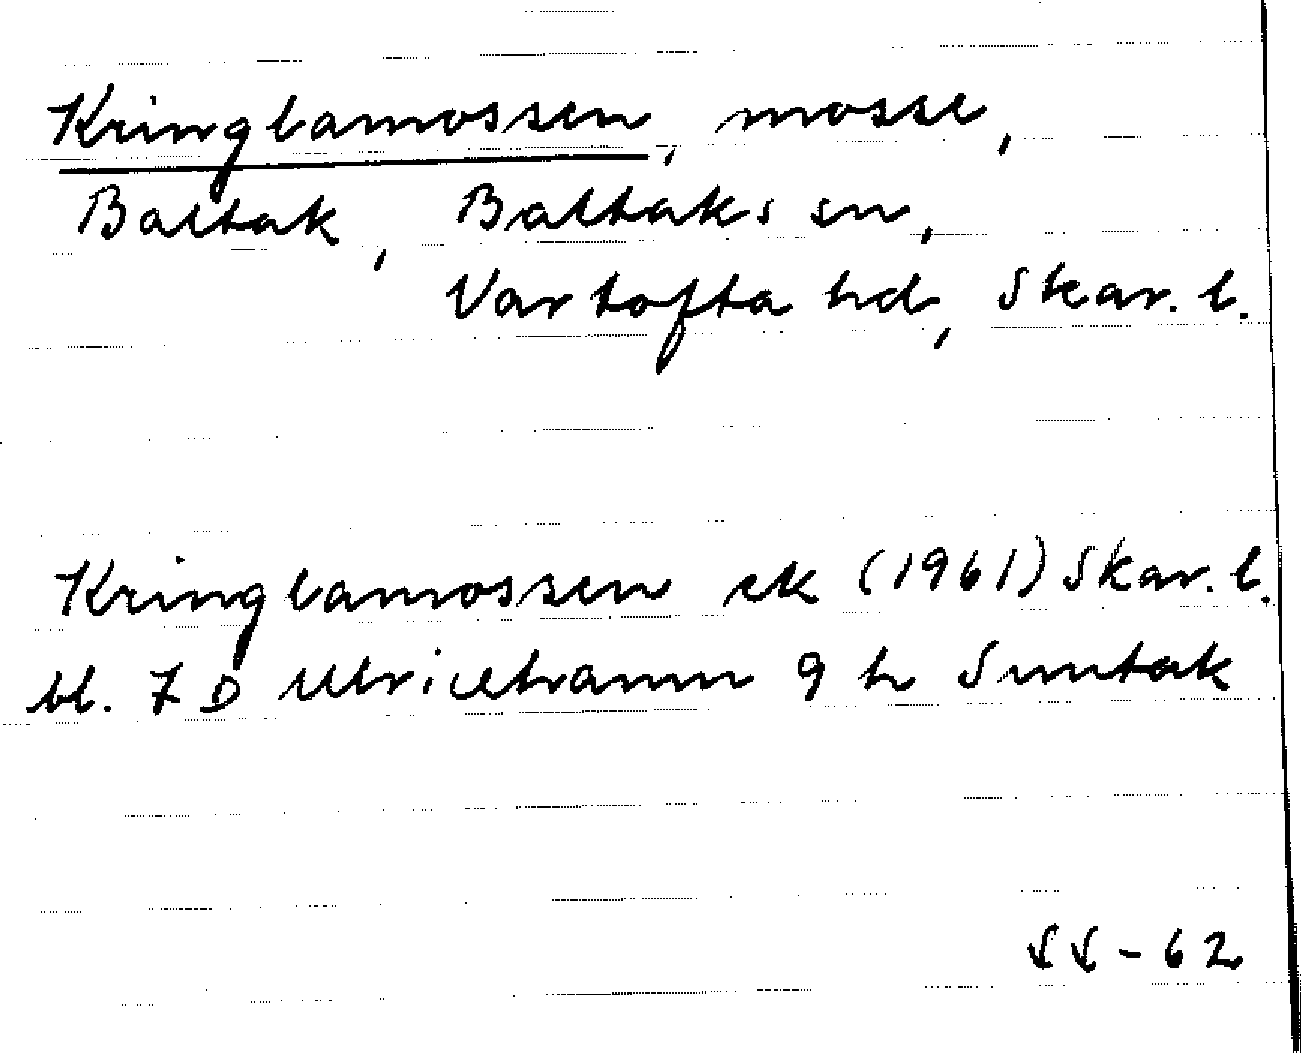 Kringlamossen, mosse,
Baltak, Baltaks sn,
Vartofta hd, Skar. l.
Kringlamossen ek (1961) Skar. l.
bl. 7 D Ulricehamn 9 h Suntak
SS-62